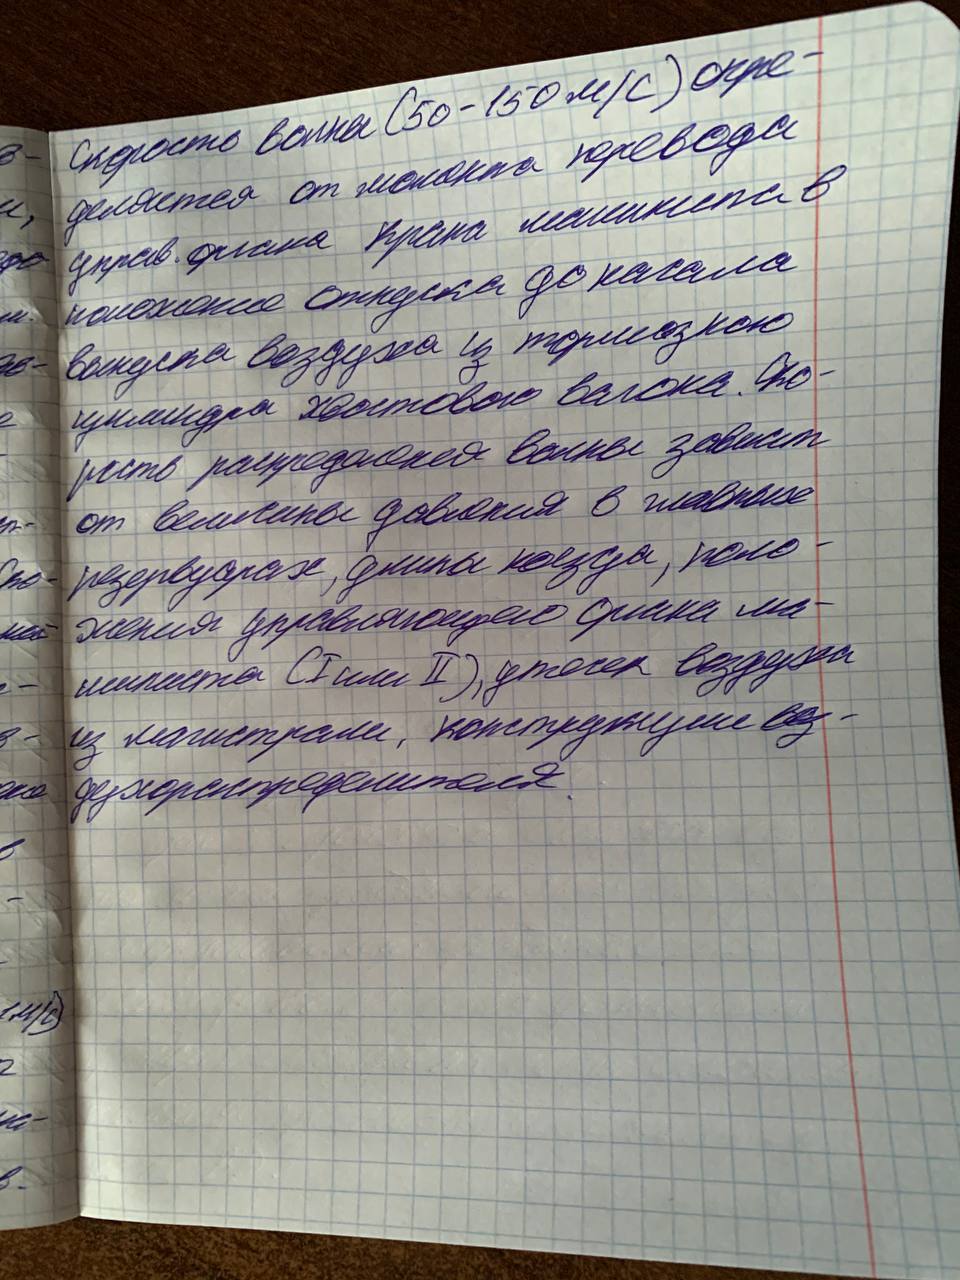 Скорость волны (50-150 м/с) опре-
деляется от момента перевода
управ. органа крана машиниста в
положение отпуска до начала
выпуска воздуха из тормозного
цилиндра хвостового вагона. Ско-
рость распределения волны зависит
от величины давления в главных
резервуарах, длины поезда, поло-
жения управляющего органа ма-
шиниста (I или II), утечек воздуха
из магистрали, конструкции воз-
духораспределителя.